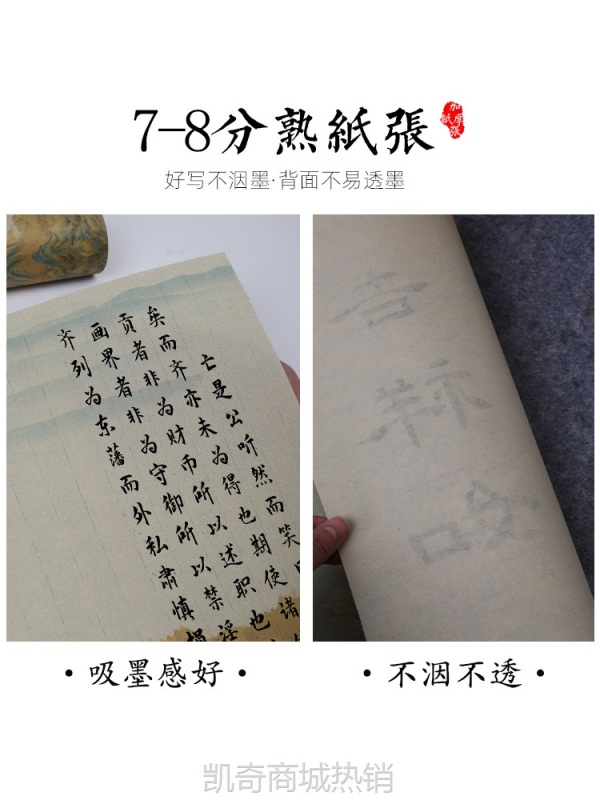 7-8分熟紙張
加厚
紙張
好写不洇墨·背面不易透墨
亡是公听然而笑
矣而齐亦未为得也期使诸
贡者非为财币所以述职也
画界者非为守御所以禁淫
齐列为东藩而外私肃慎捐
吉祥如
·吸墨感好·
·不洇不透·
凯奇商城热销